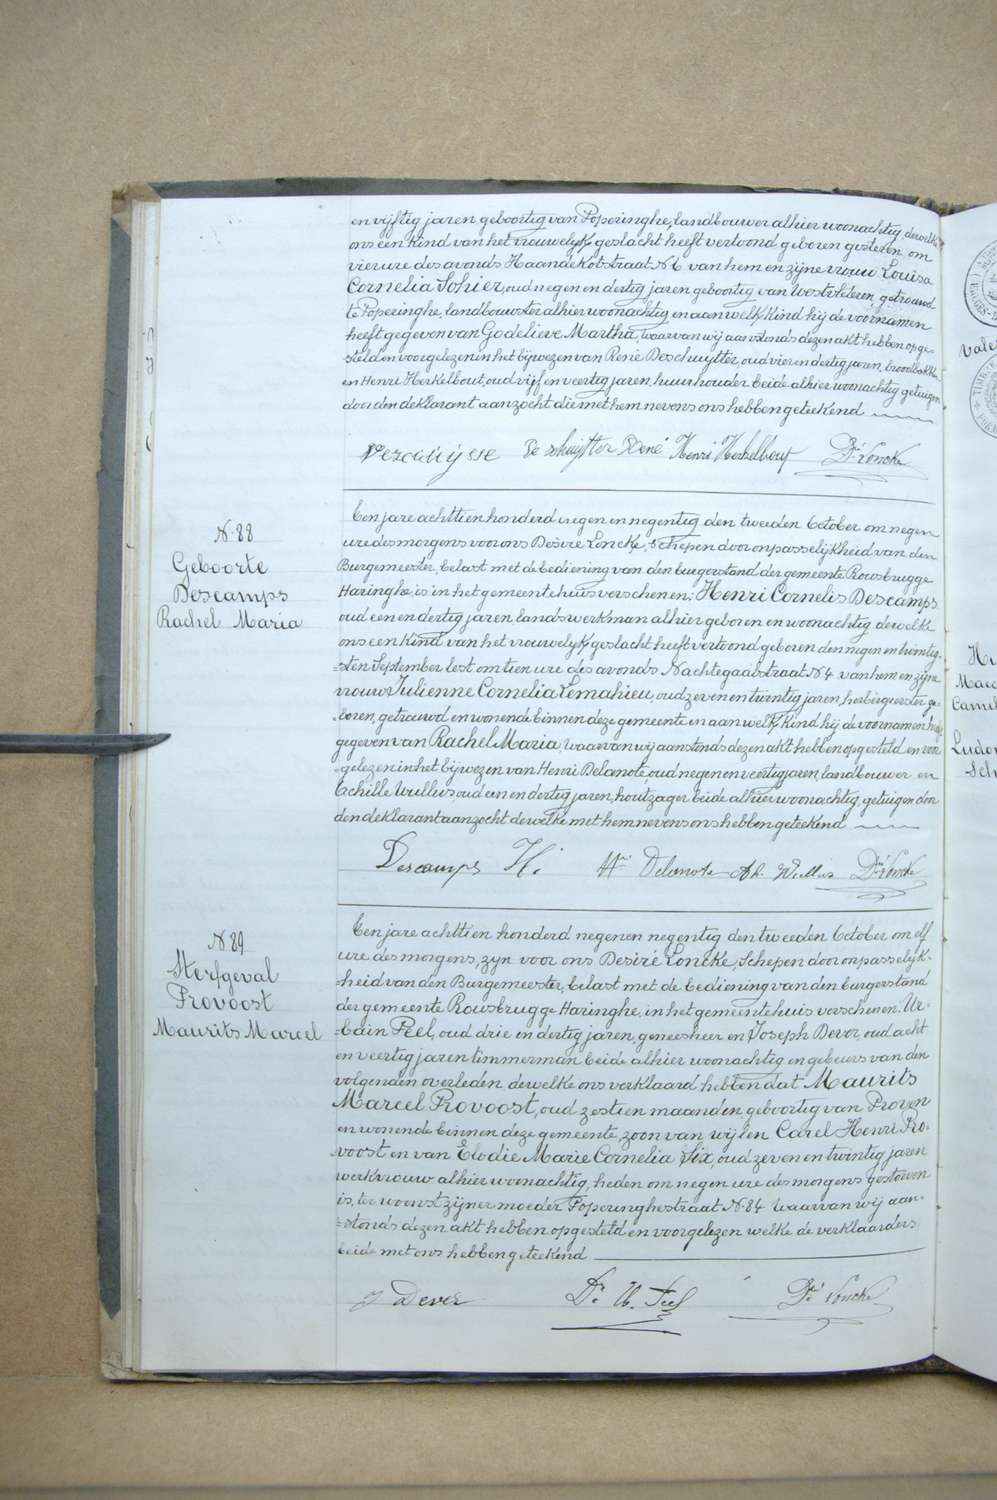 en vijftig jaren geboortig van Poperinghe, landbouwer alhier woonachtig, dewelke
ons een kind van het vrouwelijk geslacht heeft vertoond geboren gisteren, om
vier ure des avonds Haandekotstraat N. 6 van hem en zijne vrouw Louisa
Cornelia Sohier, oud negen en dertig jaren geboortig van Westvleteren, getrouwd
te Poperinghe, landbouwster alhier woonachtig en aan welk kind hij de voornamen
heeft gegeven van Godelieve Martha, waarvan wij aanstonds dezen akt hebben opge-
steld en voorgelezen in het bijwezen van René Deschuytter, oud vier en dertig jaren, broodbakker
en Henri Herkelbout, oud vijf en veertig jaren, huurhouder beide alhier woonachtig getuigen
door den deklarant aanzocht die met hem nevens ons hebben geteekend
Deschuytter René Henri Herkelbout Dré Loncke
N. 88
Geboorte
Descamps
Rachel Maria
Een jare achttien honderd negen en negentig den tweeden October om negen
ure des morgens voor ons Desiré Loncke, Schepen door onpasselijkheid van den
Burgemeester, belast met de bediening van den burgerstand der gemeente Rousbrugge
Haringhe, is in het gemeentehuis verschenen; Henri Cornelis Descamps
oud een en dertig jaren, landswerkman alhier geboren en woonachtig dewelke
ons een kind van het vrouwelyk geslacht heeft vertoond geboren den negen en twintig-
sten September lest om tien ure des avonds Nachtegaalstraat N. 4 van hem en zijne
vrouw Julienne Cornelia Lemahieu, oud zeven en twintig jaren, herbiergierster ge-
boren, getrouwd en wonende binnen deze gemeente en aan welk kind hij de voornamen heeft
gegeven van Rachel Maria, waarvan wij aanstonds dezen akt hebben opgesteld en voor
gelezen in het bijwezen van Henri Delanote, oud negen en veertig jaren, landbouwer en
Achille Wullus, oud een en dertig jaren, houtzager beide alhier woonachtig, getuigen door
den deklarant aanzocht dewelke met hem nevens ons hebben geteekend
Descamps H. Hri Delanote Ah. Wullus Dré Loncke
N. 89
Sterfgeval
Provoost
Maurits Marcel
Een jare achttien honderd negen en negentig den tweeden October om elf
ure des morgens, zyn voor ons Desiré Loncke, Schepen door onpasselijk-
heid van den Burgemeester, belast met de bediening van den burgerstand
der gemeente Rousbrugge Haringhe, in het gemeentehuis verschenen: Ur-
bain Peel, oud drie en dertig jaren, geneesheer en Joseph Dever, oud acht
en veertig jaren timmerman beide alhier woonachtig en gebeurs van den
volgenden overleden dewelke ons verklaard hebben dat Maurits
Marcel Provoost, oud zestien maanden geboortig van Proven
en wonende binnen deze gemeente, zoon van wijlen Carel Henri Pro-
voost en van Elodie Marie Cornelia Six, oud zeven en twintig jaren
werkvrouw alhier woonachtig, heden om negen ure des morgens gestorven
is, ter woonst zijner moeder Poperinghestraat N. 84 Waarvan wij aan-
stonds dezen akt hebben opgesteld en voorgelezen welke de verklaarders
beide met ons hebben geteekend
J Dever Dr U. Peel Dré Loncke